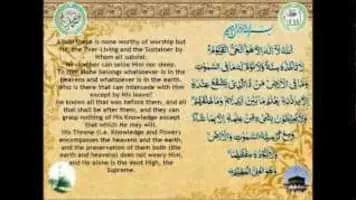 بسم الله الرحمن الرحيم
Allah! there is none worthy of worship but
He, the Ever-Living and the Sustainer by
Whom all subsist.
No slumber can seize Him nor sleep.
To Him alone belongs whatsoever is in the
heavens and whatsoever is in the earth.
Who is there that can intercede with Him
except by His leave?
He knows all that was before them, and all
that shall be after them, and they can
grasp nothing of His Knowledge except
that which He may will.
His Throne (i.e. Knowledge and Power)
encompasses the heavens and the earth,
and the preservation of them both (the
earth and heavens) does not weary Him,
and He alone is the Most High, the
Supreme.
اَللهُ لَآ اِلٰهَ اِلَّا هُوَ الْحَيُّ الْقَيُّوْمُ
لَا تَاْخُذُهٗ سِنَةٌ وَّلَا نَوْمٌ لَهٗ مَا فِي السَّمٰوٰتِ
وَمَا فِي الْاَرْضِ مَنْ ذَا الَّذِيْ يَشْفَعُ عِنْدَهٗٓ
اِلَّا بِاِذْنِهٖ يَعْلَمُ مَا بَيْنَ اَيْدِيْهِمْ وَمَا خَلْفَهُمْ
وَلَا يُحِيْطُوْنَ بِشَيْءٍ مِّنْ عِلْمِهٖٓ اِلَّا بِمَا شَآءَ
وَسِعَ كُرْسِيُّهُ السَّمٰوٰتِ وَالْاَرْضَ
وَلَا يَئُوْدُهٗ حِفْظُهُمَا
وَهُوَ الْعَلِيُّ الْعَظِيْمُ